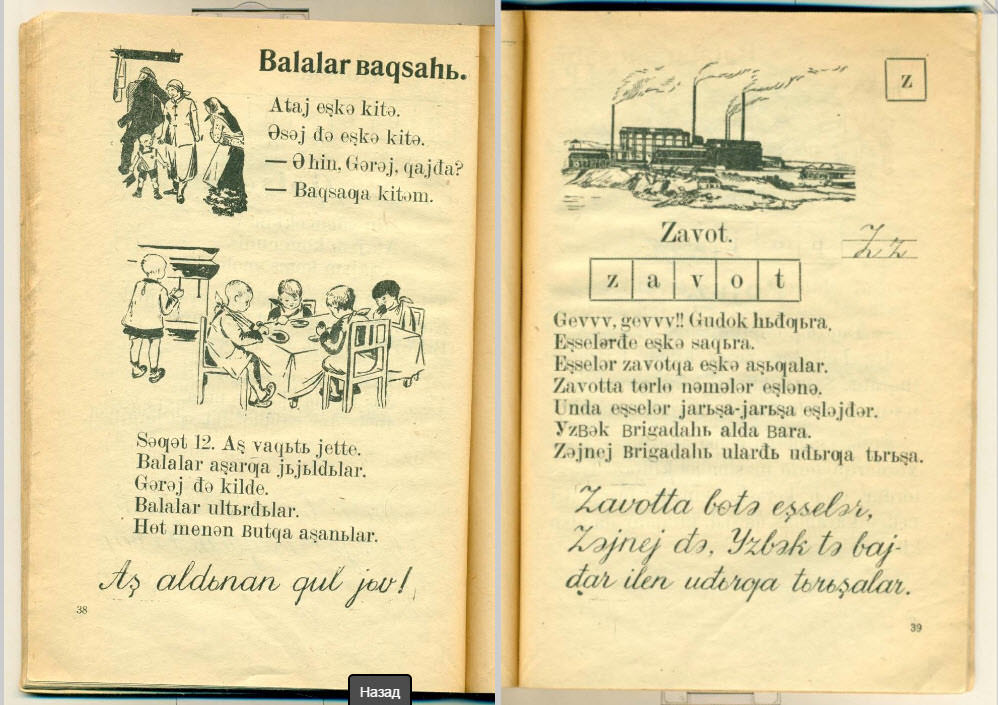 Balalar ʙaqsahь.
Ataj eşkə kitə.
Əsəj đə eşkə kitə.
— Ə hin, Gərəj, qajđa?
— Baqsaƣa kitəm.
Səƣət 12. Aş vaqьtь jette.
Balalar aşarƣa jьjьldьlar.
Gərəj đə kilde.
Balalar ultьrđьlar.
Hɵt menən ʙutqa aşanьlar.
Aş aldьnan qul jɵv!
38
Назад
z
Zavot.
Z z
z a v o t
Gevvv, gevvv!! Gudok hьđƣьra.
Eşselərđe eşkə saqьra.
Eşselər zavotqa eşkə aşьƣalar.
Zavotta tɵrlɵ nəmələr eşlənə.
Unda eşselər jarьşa-jarьşa eşləjđər.
Yzʙək ʙrigadahь alda ʙara.
Zəjnej ʙrigadahь ularđь uđьrƣa tьrьşa.
Zavotta bɵtə eşselər,
Zəjnej đə, Yzbək tə baj-
đar ilen uđьrƣa tьrьşalar.
39